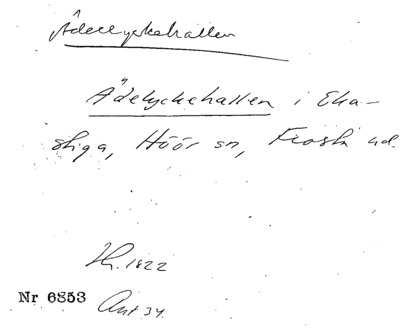 Ädelyckehallen
Ädelyckehallen i Eka-
stiga, Höör sn, Frosta hd.
Th. 1822
Nr 6853 Ant 34